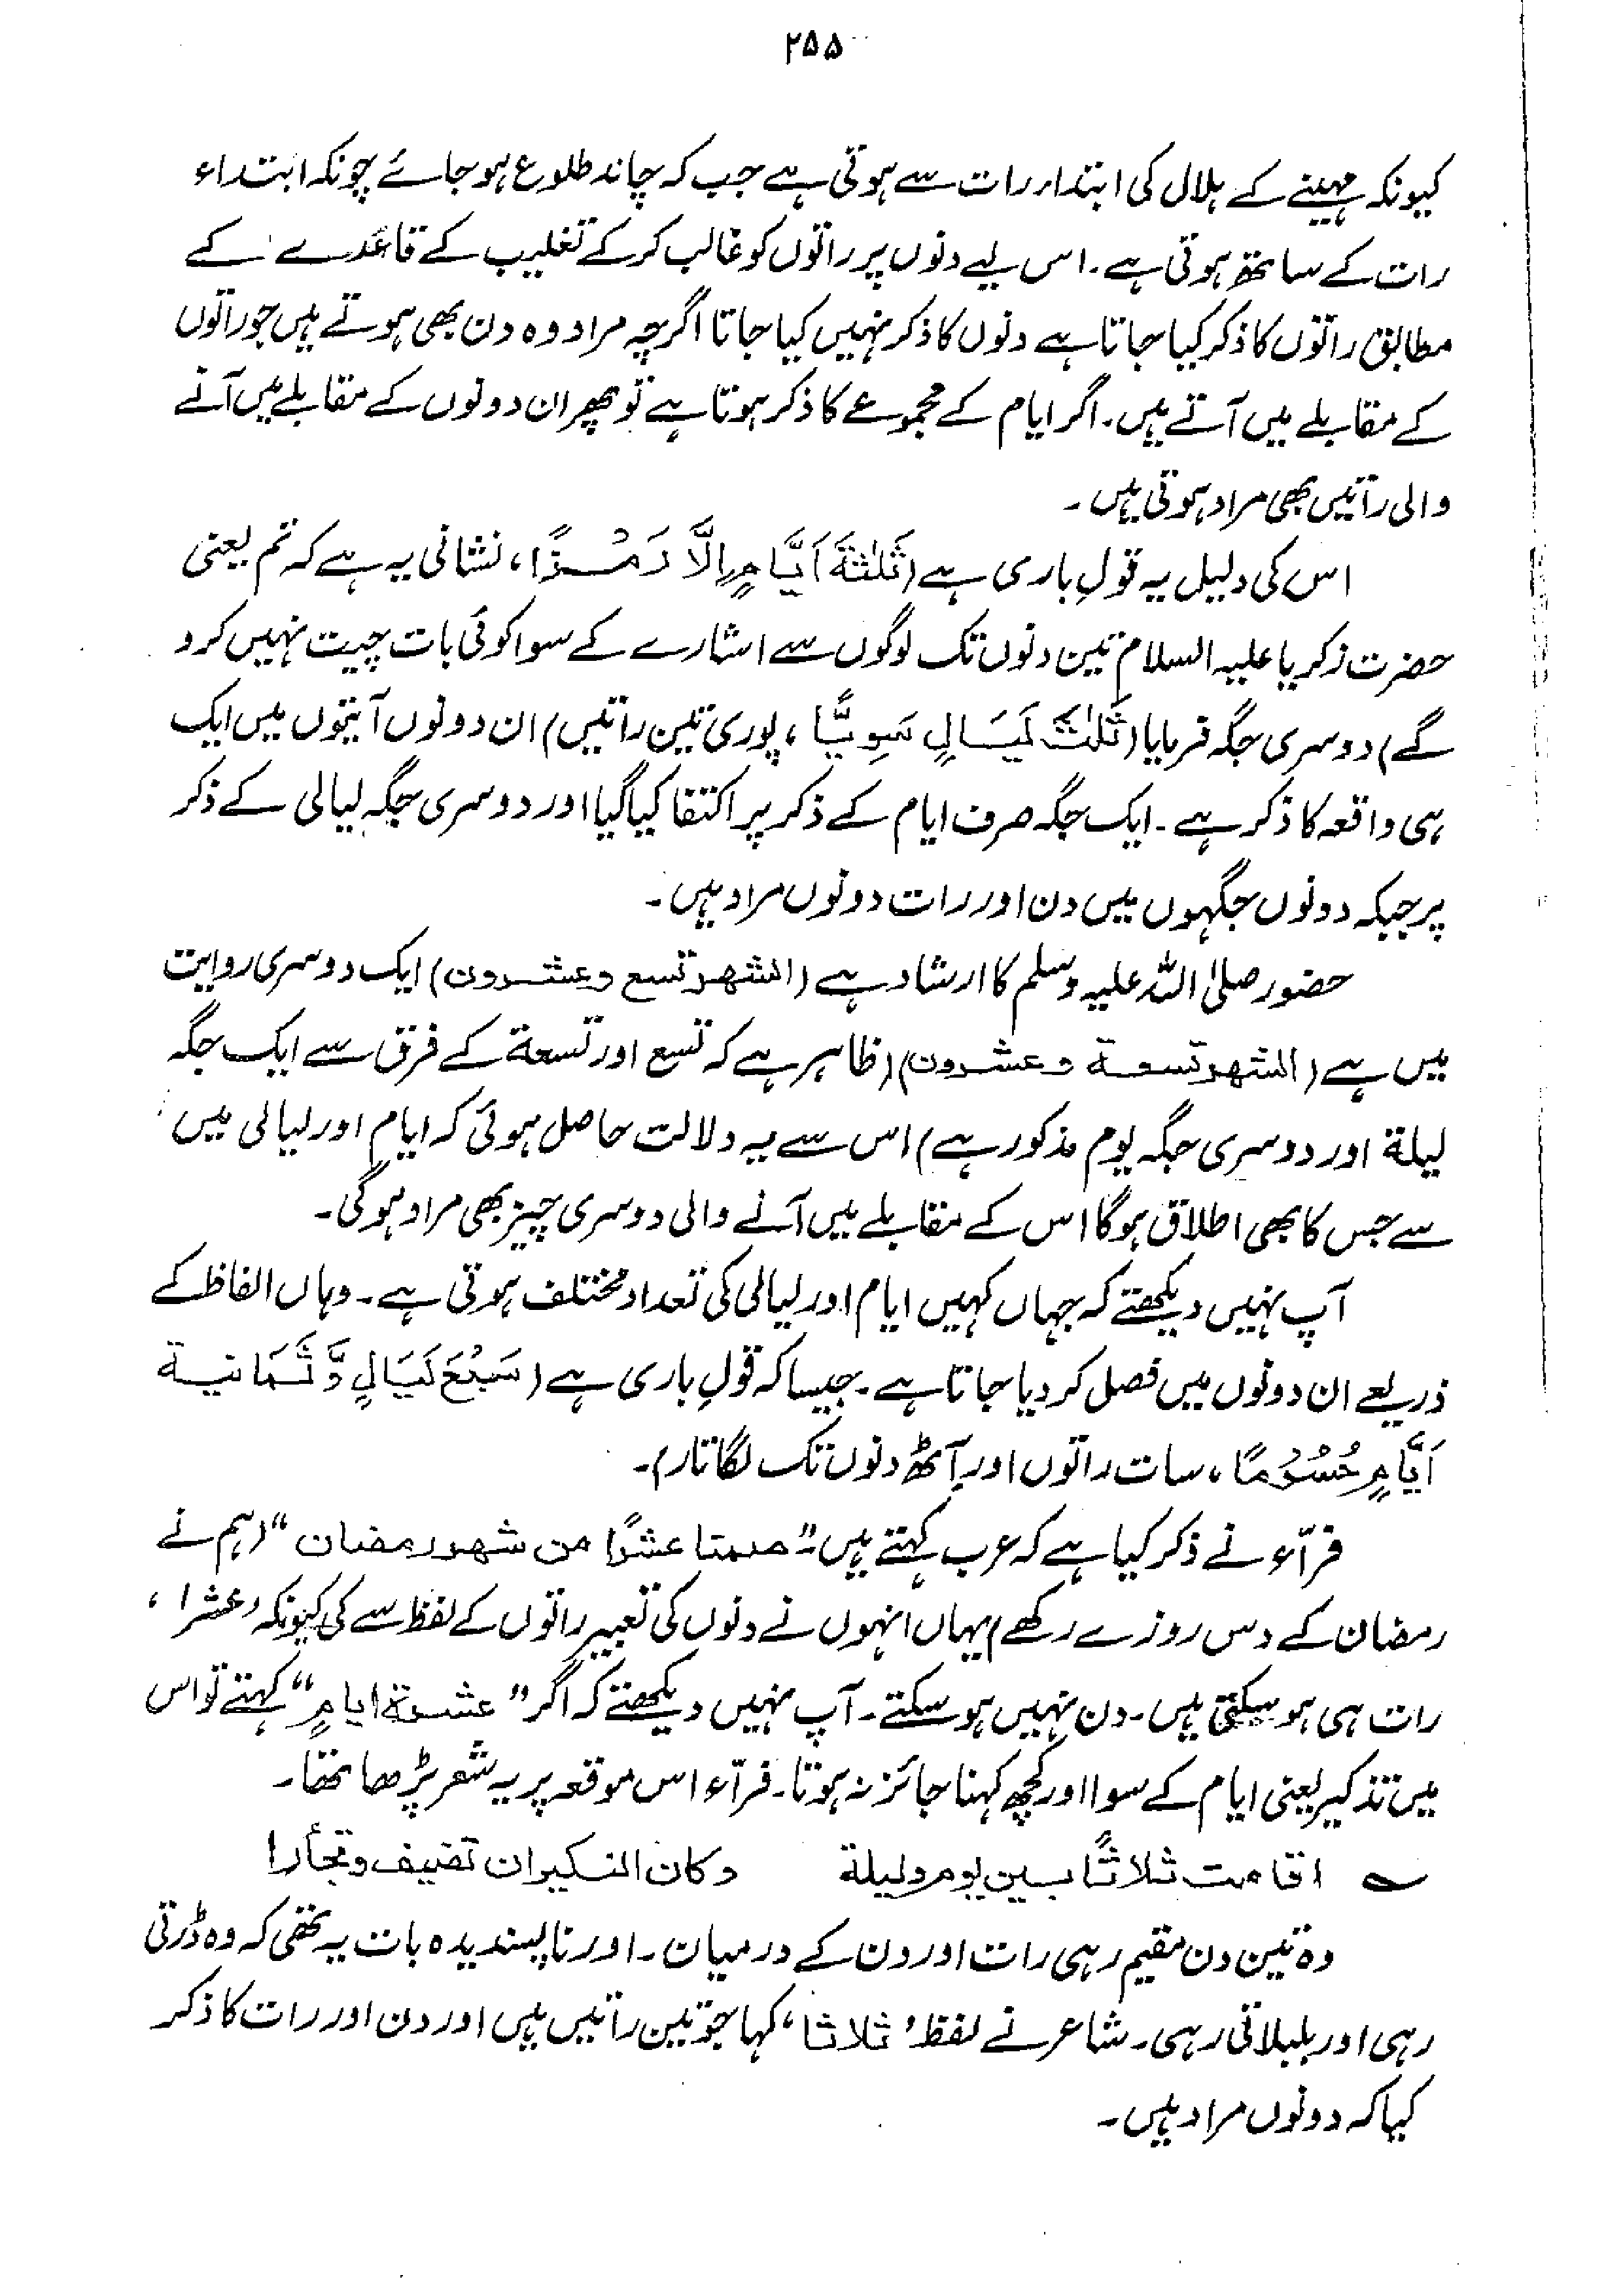 ۲۵۵
کیونکہ مہینے کے ہلال کی ابتداء رات سے ہوتی ہے جب کہ چاند طلوع ہو جائے چونکہ ابتداء
رات کے ساتھ ہوتی ہے۔ اس لیے دنوں پر راتوں کو غالب کر کے تغلیب کے قاعدے کے
مطابق راتوں کا ذکر کیا جاتا ہے دنوں کا ذکر نہیں کیا جاتا اگرچہ مراد وہ دن بھی ہوتے ہیں جو راتوں
کے مقابلے میں آتے ہیں۔ اگر ایام کے مجموعے کا ذکر ہوتا ہے تو پھر ان دونوں کے مقابلے میں آنے
والی راتیں بھی مراد ہوتی ہیں۔
اس کی دلیل یہ قولِ باری ہے (ثَلٰثَةَ اَیَّامٍ اِلَّا رَمْزًا، نشانی یہ ہے کہ تم یعنی
حضرت زکریا علیہ السلام تین دنوں تک لوگوں سے اشارے کے سوا کوئی بات چیت نہیں کرو
گے) دوسری جگہ فرمایا (ثَلٰثَ لَیَالٍ سَوِیًّا، پوری تین راتیں) ان دونوں آیتوں میں ایک
ہی واقعہ کا ذکر ہے۔ ایک جگہ صرف ایام کے ذکر پر اکتفا کیا گیا اور دوسری جگہ لیالی کے ذکر
پر جبکہ دونوں جگہوں میں دن اور رات دونوں مراد ہیں۔
حضور صلی اللہ علیہ وسلم کا ارشاد ہے (الشهر تسع وعشرون) ایک دوسری روایت
میں ہے (الشهر تسعة وعشرون) (ظاہر ہے کہ تسع اور تسعة کے فرق سے ایک جگہ
لیلة اور دوسری جگہ یوم مذکور ہے) اس سے یہ دلالت حاصل ہوئی کہ ایام اور لیالی میں
سے جس کا بھی اطلاق ہوگا اس کے مقابلے میں آنے والی دوسری چیز بھی مراد ہوگی۔
آپ نہیں دیکھتے کہ جہاں کہیں ایام اور لیالی کی تعداد مختلف ہوتی ہے۔ وہاں الفاظ کے
ذریعے ان دونوں میں فصل کر دیا جاتا ہے۔ جیسا کہ قولِ باری ہے (سَبْعَ لَیَالٍ وَّثَمَانیة
اَیَّامٍ حُسُوْمًا، سات راتوں اور آٹھ دنوں تک لگاتار)۔
فرّاء نے ذکر کیا ہے کہ عرب کہتے ہیں "صمنا عشرًا من شهر رمضان" (ہم نے
رمضان کے دس روزے رکھے) یہاں انہوں نے دنوں کی تعبیر راتوں کے لفظ سے کی کیونکہ 'عشرا'
رات ہی ہو سکتی ہیں۔ دن نہیں ہو سکتے۔ آپ نہیں دیکھتے کہ اگر "عشرة ایامٍ" کہتے تو اس
میں تذکیر یعنی ایام کے سوا اور کچھ کہنا جائز نہ ہوتا۔ فرّاء اس موقعہ پر یہ شعر پڑھا تھا۔
؎ اقامت ثلاثًا بین یوم ولیلة وکان النکیر ان تضیف وتجأرا
وہ تین دن مقیم رہی رات اور دن کے درمیان۔ اور ناپسندیدہ بات یہ تھی کہ وہ ڈرتی
رہی اور بلبلاتی رہی۔ شاعر نے لفظ 'ثلاثا' کہا جو تین راتیں ہیں اور دن اور رات کا ذکر
کیا کہ دونوں مراد ہیں۔